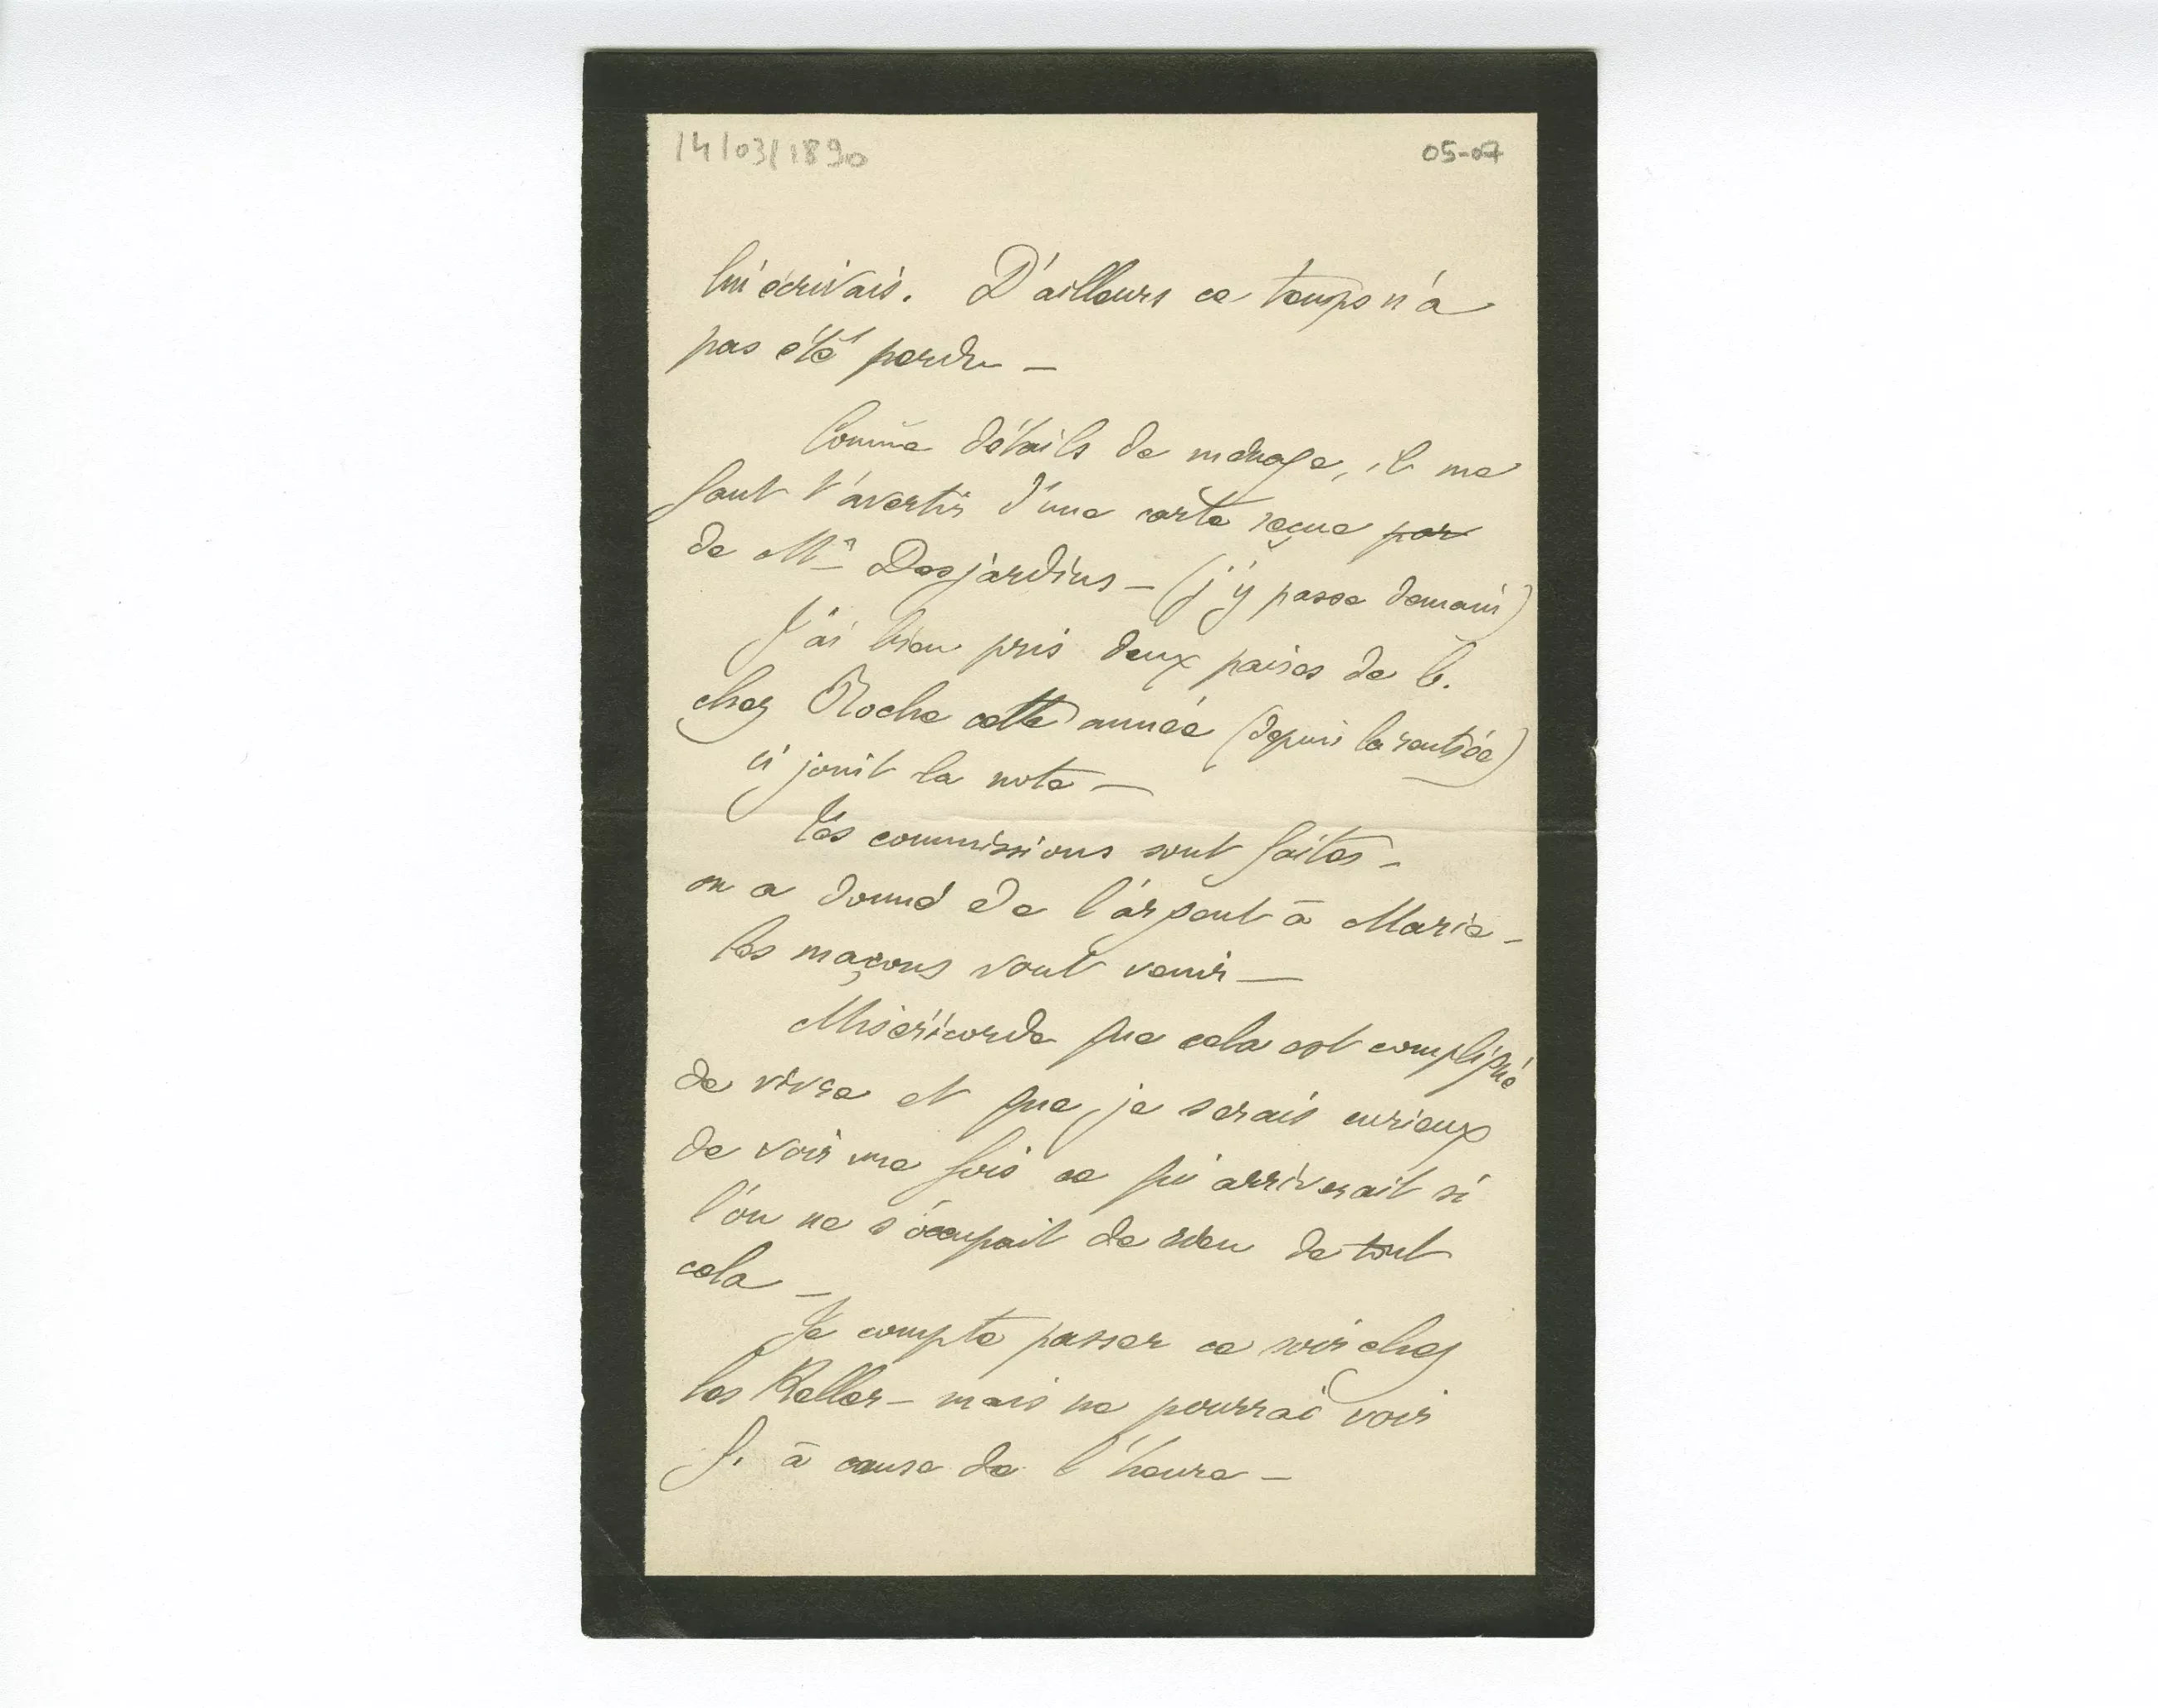 14/03/1890
05-07
lui écrivais. D'ailleurs ce temps n'a
pas été perdu —
Comme détails de ménage, il me
faut t'avertir d'une carte reçue par
de Mme Desjardins — (j'y passe demain)
J'ai bien pris deux paires de b.
chez Roche cette année (depuis la rentrée)
ci joint la note —
Tes commissions sont faites —
on a donné de l'argent à Marie —
les maçons vont venir —
Miséricorde que cela est compliqué
de vivre et que je serais curieux
de voir une fois ce qui arriverait si
l'on ne s'occupait de rien de tout
cela —
Je compte passer ce soir chez
les Keller — mais ne pourrai voir
J. à cause de l'heure —